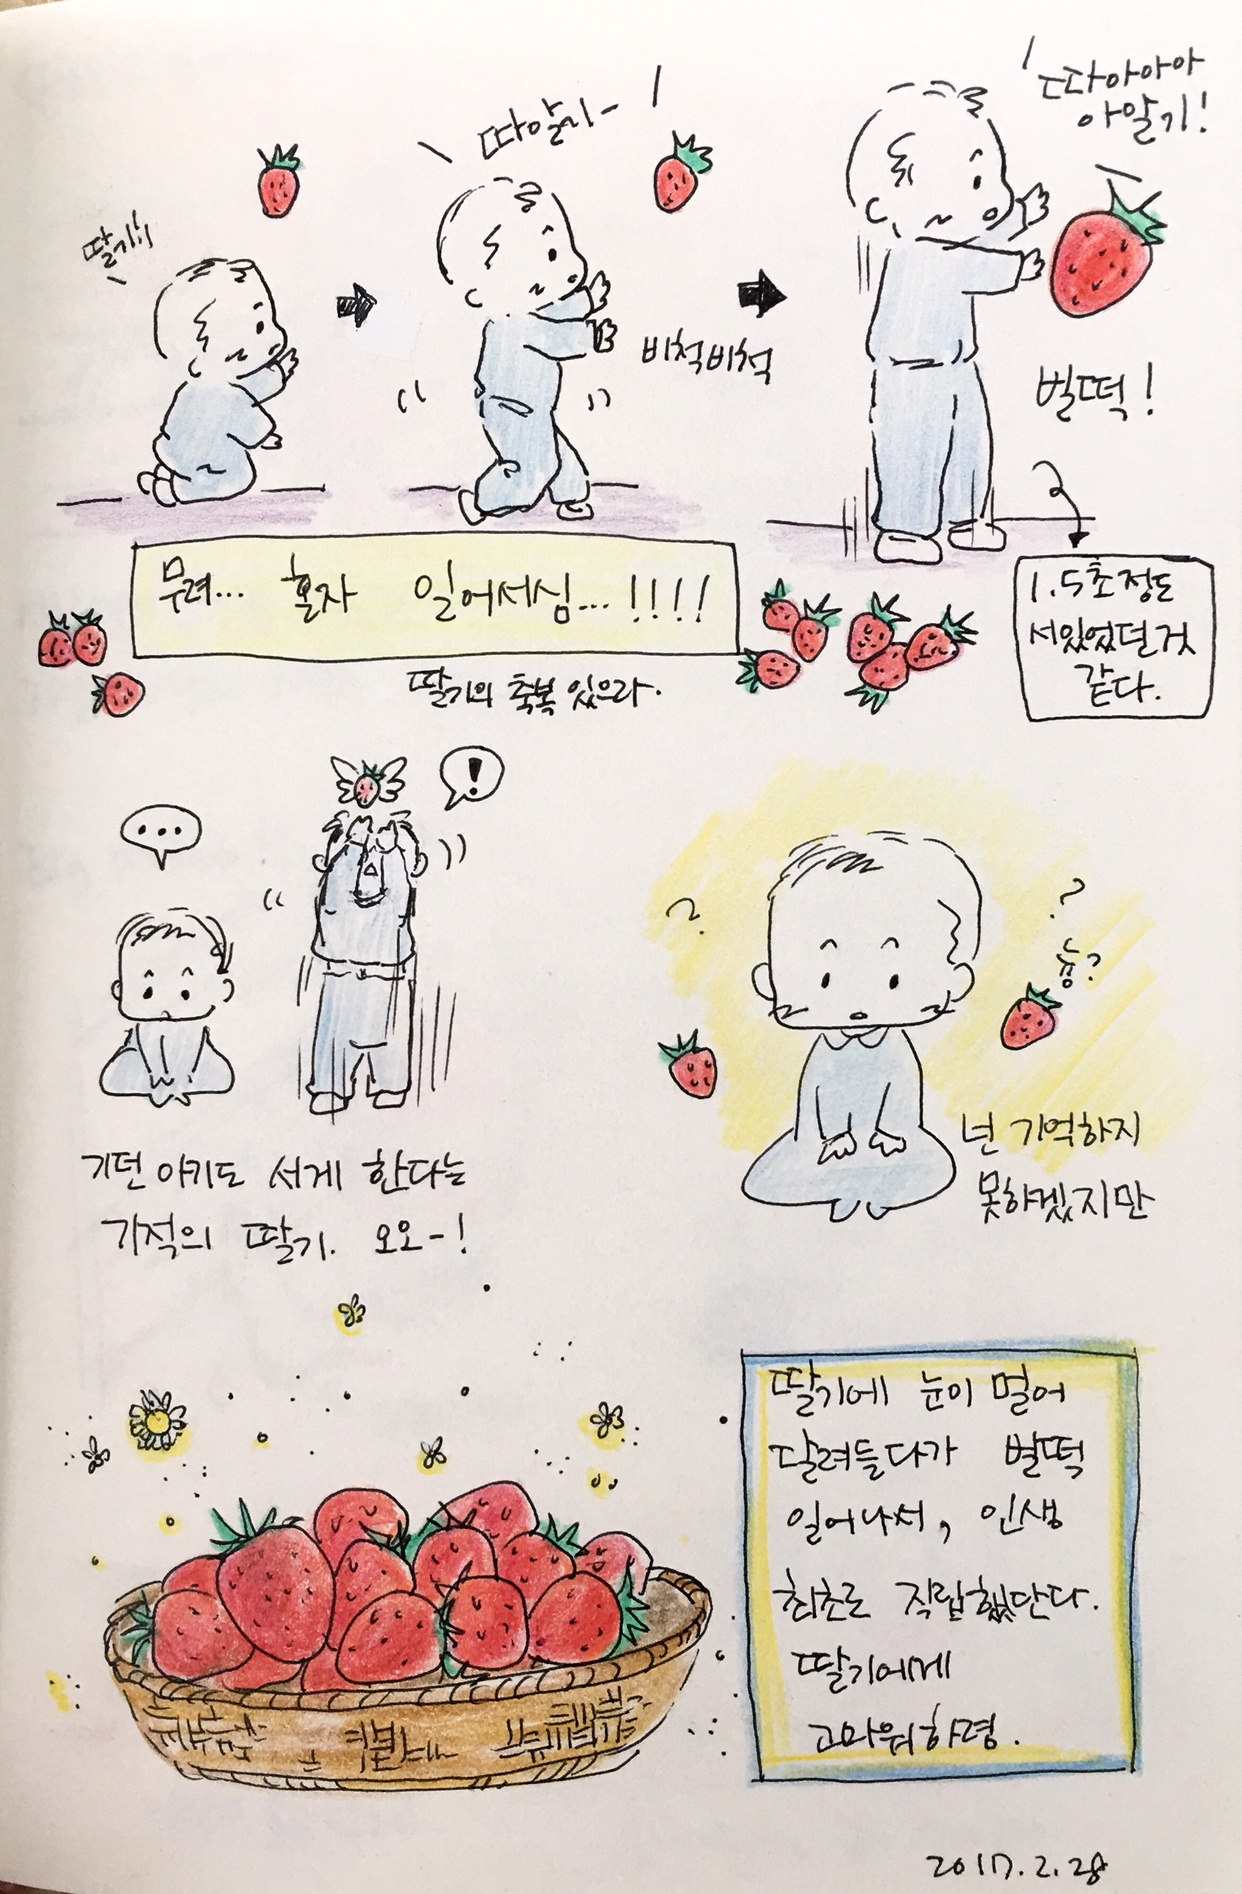 딸기!!
따알기~
따아아아
아알기!
비척비척
벌떡!
무려... 혼자 일어서심...!!!!
1.5초정도
서있었던것
같다.
딸기의 축복 있으라.
...
!
기던 아키도 서게 한다는
기적의 딸기. 오오-!
?
?
능?
넌 기억하지
못하겠지만
딸기에 눈이 멀어
달려들다가 벌떡
일어나서, 인생
최초로 직립했단다.
딸기에게
고마워하렴.
2017.2.28